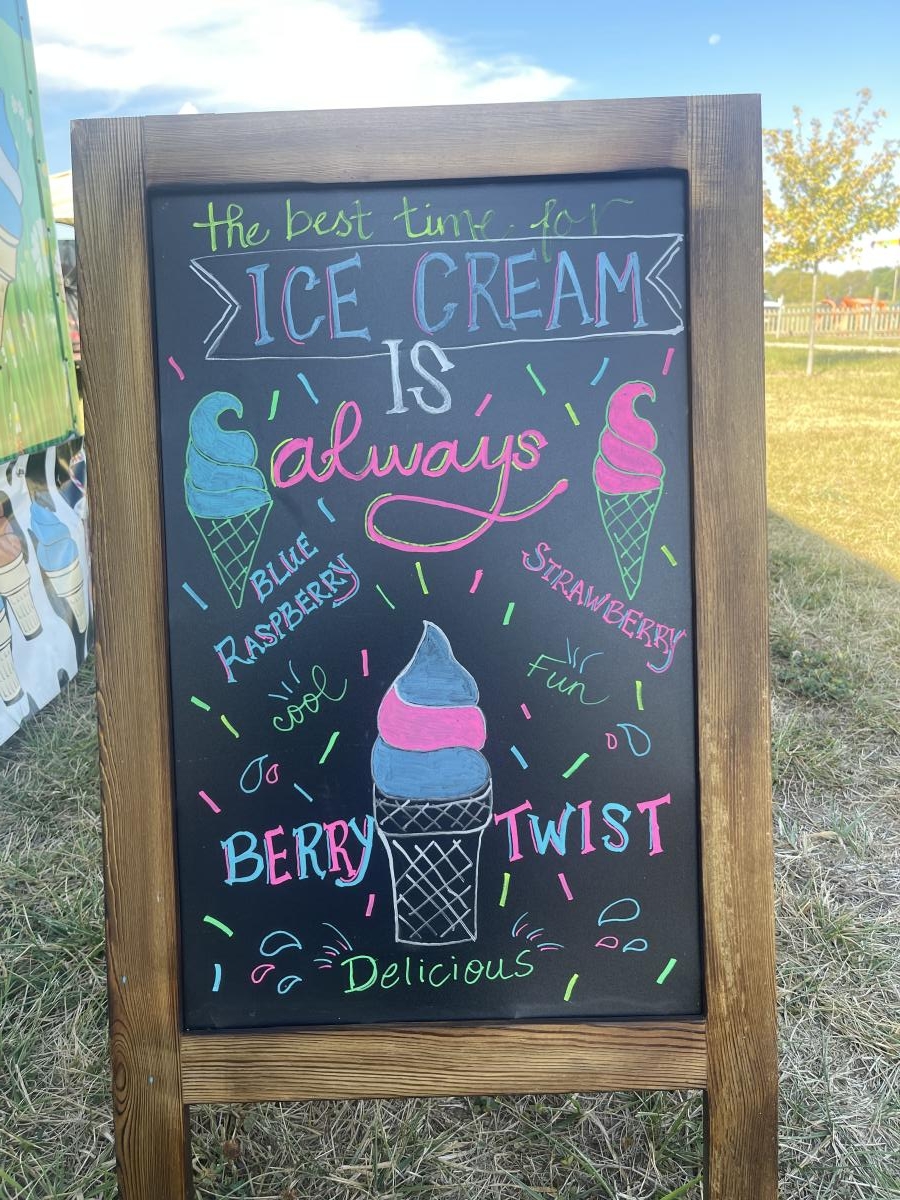 the best time for
ICE CREAM
IS
always
BLUE
RASPBERRY
STRAWBERRY
cool
Fun
BERRY TWIST
Delicious